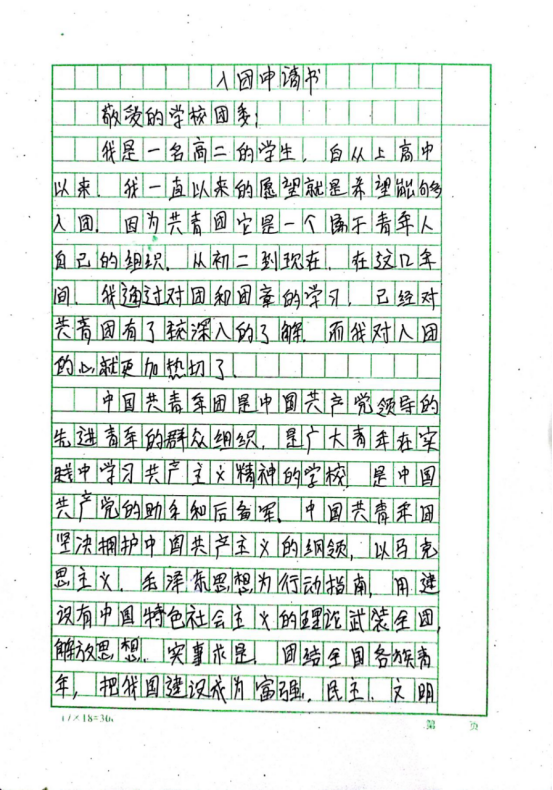 入团申请书
敬爱的学校团委:
我是一名高二的学生，自从上高中
以来，我一直以来的愿望就是希望能够
入团。因为共青团它是一个属于青年人
自己的组织。从初二到现在，在这几年
间，我通过对团和团章的学习，已经对
共青团有了较深入的了解，而我对入团
的心就更加热切了。
中国共青年团是中国共产党领导的
先进青年的群众组织，是广大青年在实
践中学习共产主义精神的学校，是中国
共产党的助手和后备军。中国共青年团
坚决拥护中国共产主义的纲领，以马克
思主义，毛泽东思想为行动指南，用建
设有中国特色社会主义的理论武装全团，
解放思想，实事求是，团结全国各族青
年，把我国建设成为富强、民主、文明
17×18=306
第 页